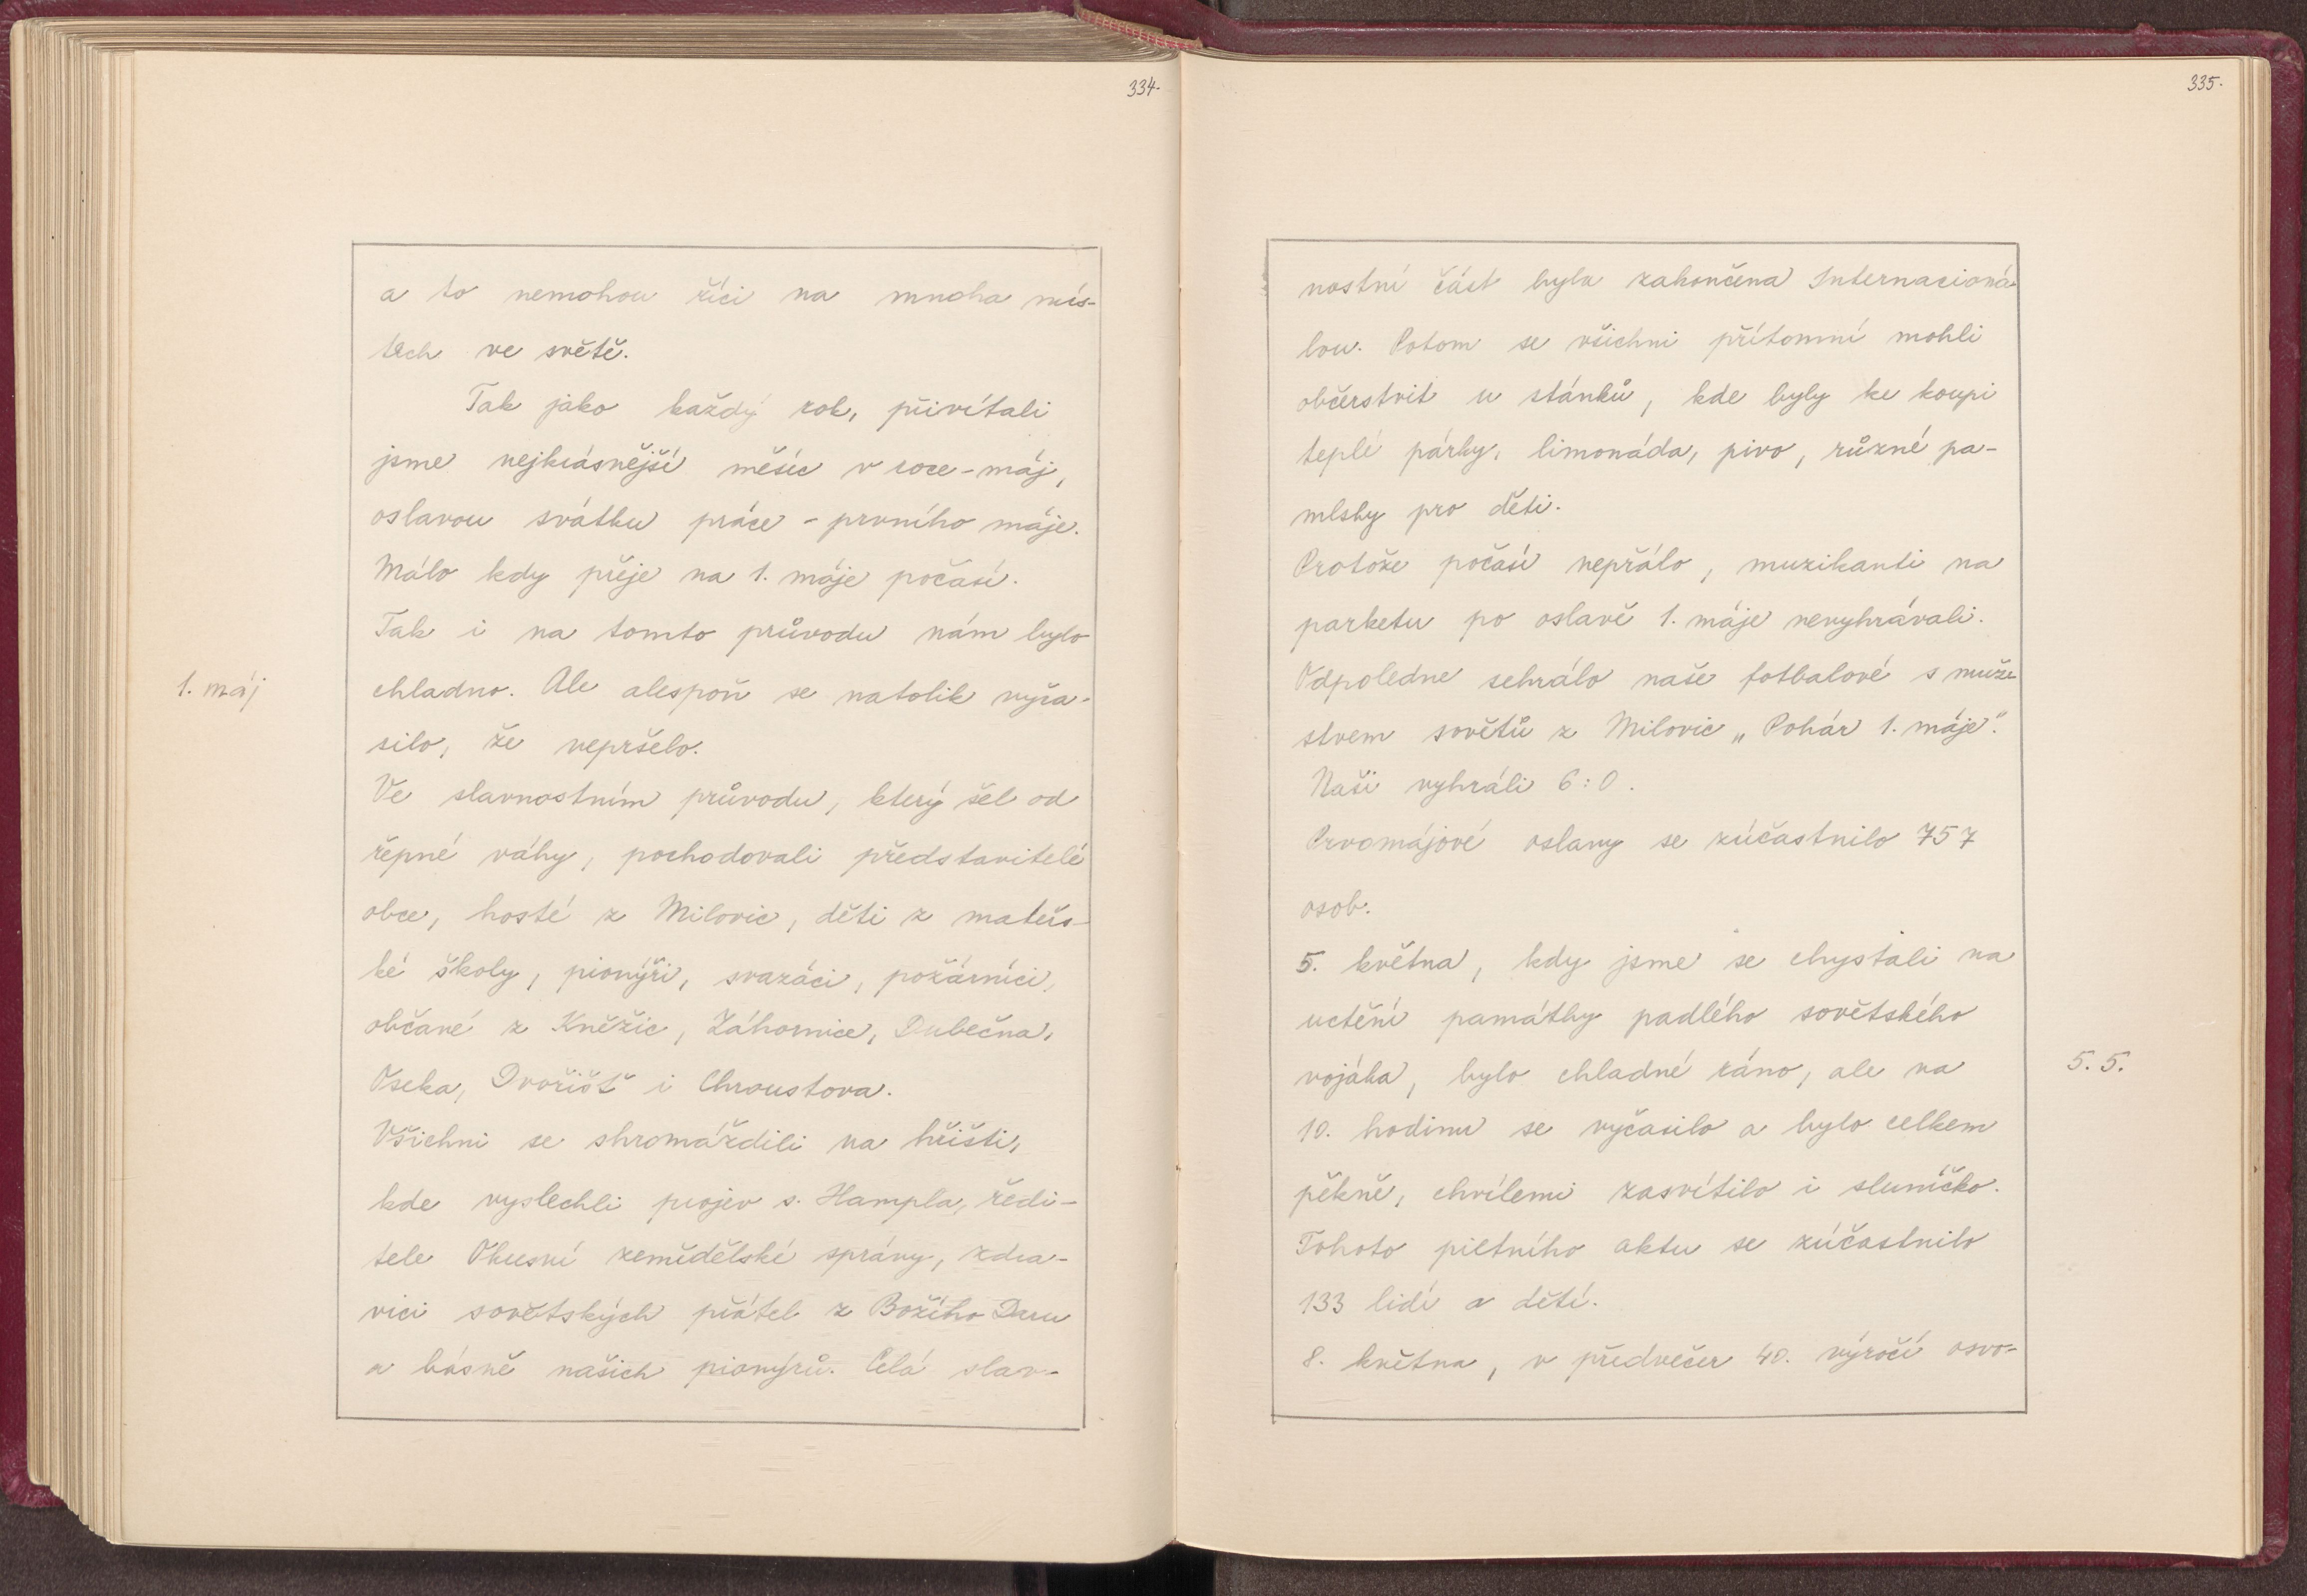 334.
a to nemohou říci na mnoha mís-
tech ve světě.
Tak jako každý rok, přivítali
jsme nejkrásnější měsíc v roce - máj,
oslavou svátku práce - prvního máje.
Málo kdy přeje na 1. máje počasí.
Tak i na tomto průvodu nám bylo
1. máj
chladno. Ale alespoň se natolik vyča-
silo, že nepršelo.
Ve slavnostním průvodu, který šel od
řepné váhy, pochodovali představitelé
obce, hosté z Milovic, děti z mateřs-
ké školy, pionýři, svazáci, požárníci,
občané z Kněžic, Záhornice, Dubečna,
Oseka, Dvořišť i Chroustova.
Všichni se shromáždili na hřišti,
kde vyslechli projev s. Hampla, ředi-
tele Okresní zemědělské správy, zdra-
vici sovětských přátel z Božího Daru
a básně našich pionýrů. Celá slav-
335.
nostní část byla zakončena Internacioná-
lou. Potom se všichni přítomní mohli
občerstvit u stánků, kde byly ke koupi
teplé párky, limonáda, pivo, různé pa-
mlsky pro děti.
Protože počasí nepřálo, muzikanti na
parketu po oslavě 1. máje nevyhrávali.
Odpoledne sehrálo naše fotbalové s muže
stvem sovětů z Milovic „Pohár 1. máje".
Naši vyhráli 6:0.
Prvomájové oslavy se zúčastnilo 757
osob.
5. května, kdy jsme se chystali na
uctění památky padlého sovětského
vojáka, bylo chladné ráno, ale na
5. 5.
10. hodinu se vyčasilo a bylo celkem
pěkně, chvílemi zasvítilo i sluníčko.
Tohoto pietního aktu se zúčastnilo
133 lidí a dětí.
8. května, v předvečer 40. výročí osvo-